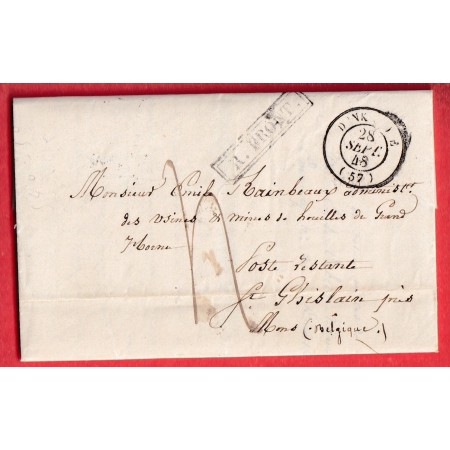 R. FRONT.
28
SEPT.
48
(57)
Monsieur Emile Rainbeaux admins.tr
des usines & mines de houilles de Grand
hornu
Poste restante
St Ghislain près
Mons (Belgique.)